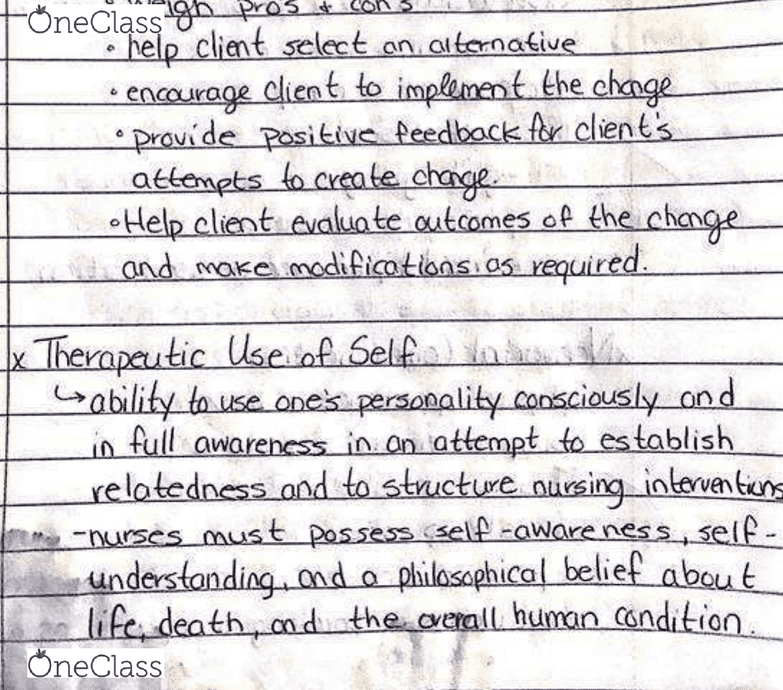 weigh pros & con's
OneClass
• help client select an alternative
• encourage client to implement the change
• provide positive feedback for client's
attempts to create change.
• Help client evaluate outcomes of the change
and make modifications as required.
x Therapeutic Use of Self
↳ ability to use one's personality consciously and
in full awareness in an attempt to establish
relatedness and to structure nursing interventions
-nurses must possess self-awareness, self-
understanding, and a philosophical belief about
life, death, and the overall human condition.
OneClass